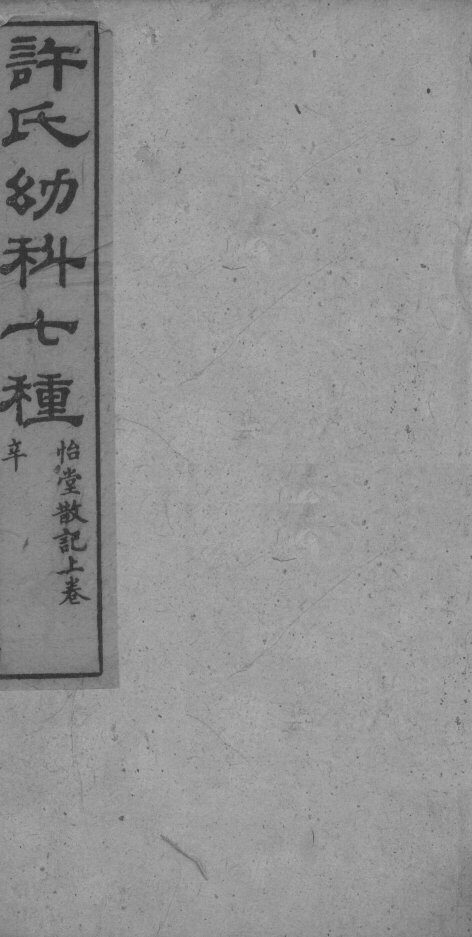 許氏幼科七種
怡堂散記上卷
辛